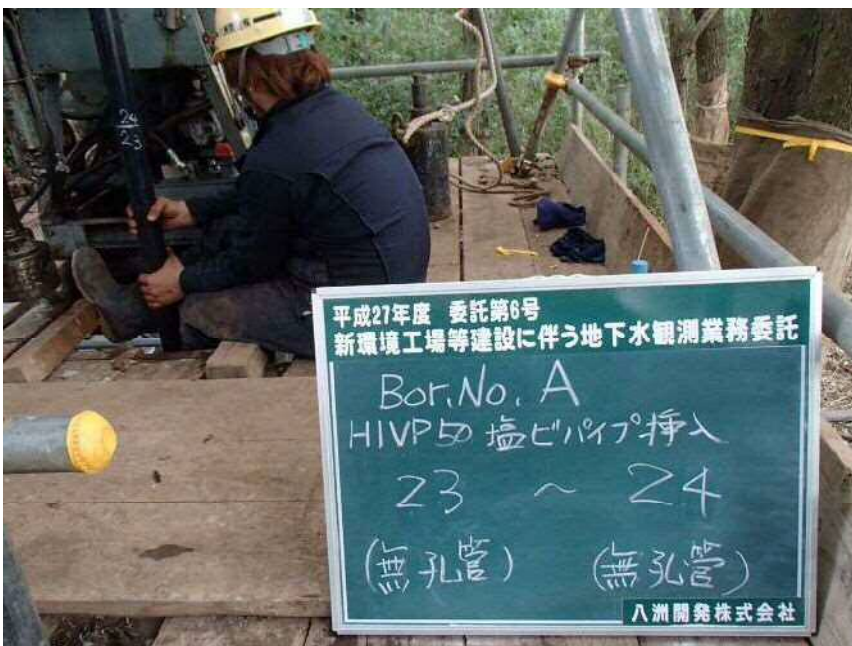 24
23
平成27年度 委託第6号
新環境工場等建設に伴う地下水観測業務委託
Bor.No. A
HIVP50 塩ビパイプ挿入
23 ～ 24
(無孔管) (無孔管)
八洲開発株式会社